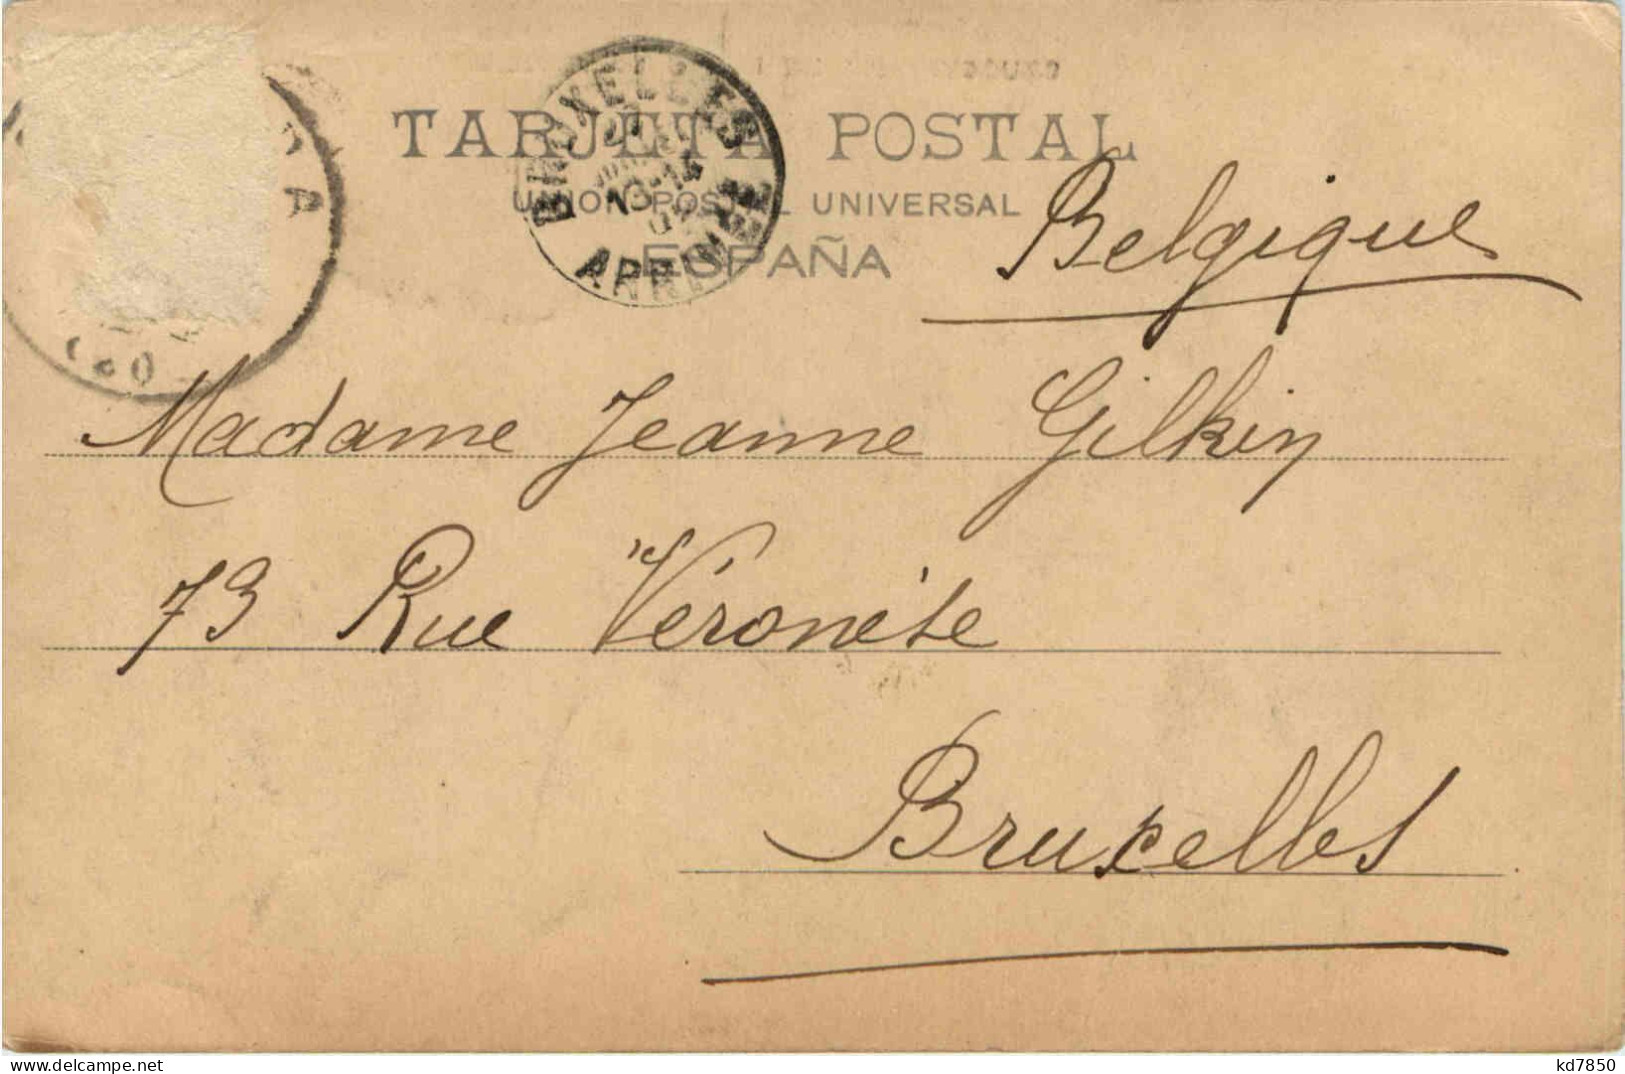 TARJETA POSTAL
UNION POSTAL UNIVERSAL
ESPAÑA
BRUXELLES
ARRIVÉE
Belgique
Madame Jeanne Gilkin
73 Rue Véronèse
Bruxelles
www.delcampe.net
kd7850